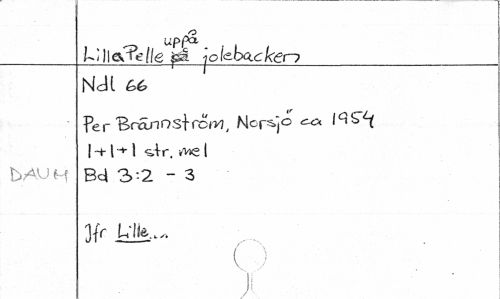 Lilla Pelle uppå jolebacken
Ndl 66
Per Brännström, Norsjö ca 1954
1+1+1 str. mel
DAUM Bd 3:2 - 3
Jfr Lille...